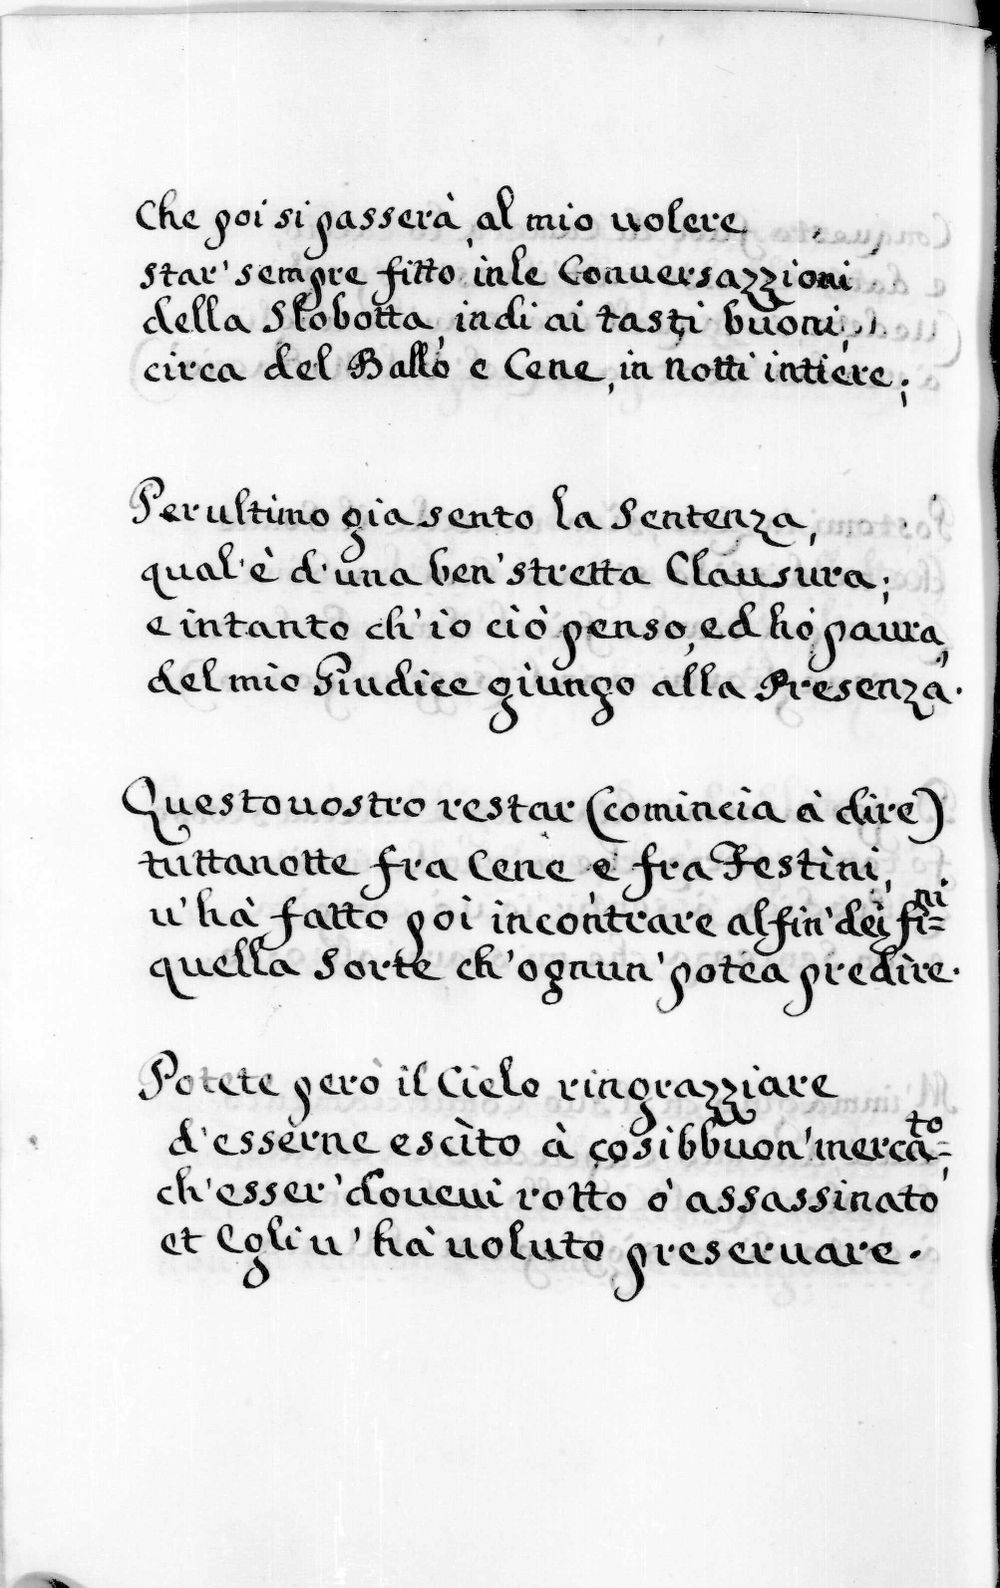 Che poi si passerà, al mio uolere
star' sempre fitto, inle Conuersazzioni
della Slobotta, indi ai tasti buoni,
circa del Ballo e Cene, in notti intiere;
Per ultimo gia sento la Sentenza,
qual' è d'una ben' stretta Clausura;
e intanto ch' io ciò penso, ed hò paura,
del mio Giudice giungo alla Presenza.
Questo uostro restar (comincia à dire)
tuttanotte fra Cene, e fra Festini,
u' hà fatto poi incontrare alfin' dei fi=ni
quella Sorte ch' ognun' potea predire.
Potete però il Cielo ringrazziare
d'esserne escito à così bbuon' merca=to,
ch' esser' doueui rotto ò assassinato
et Egli u' hà uoluto preseruare.